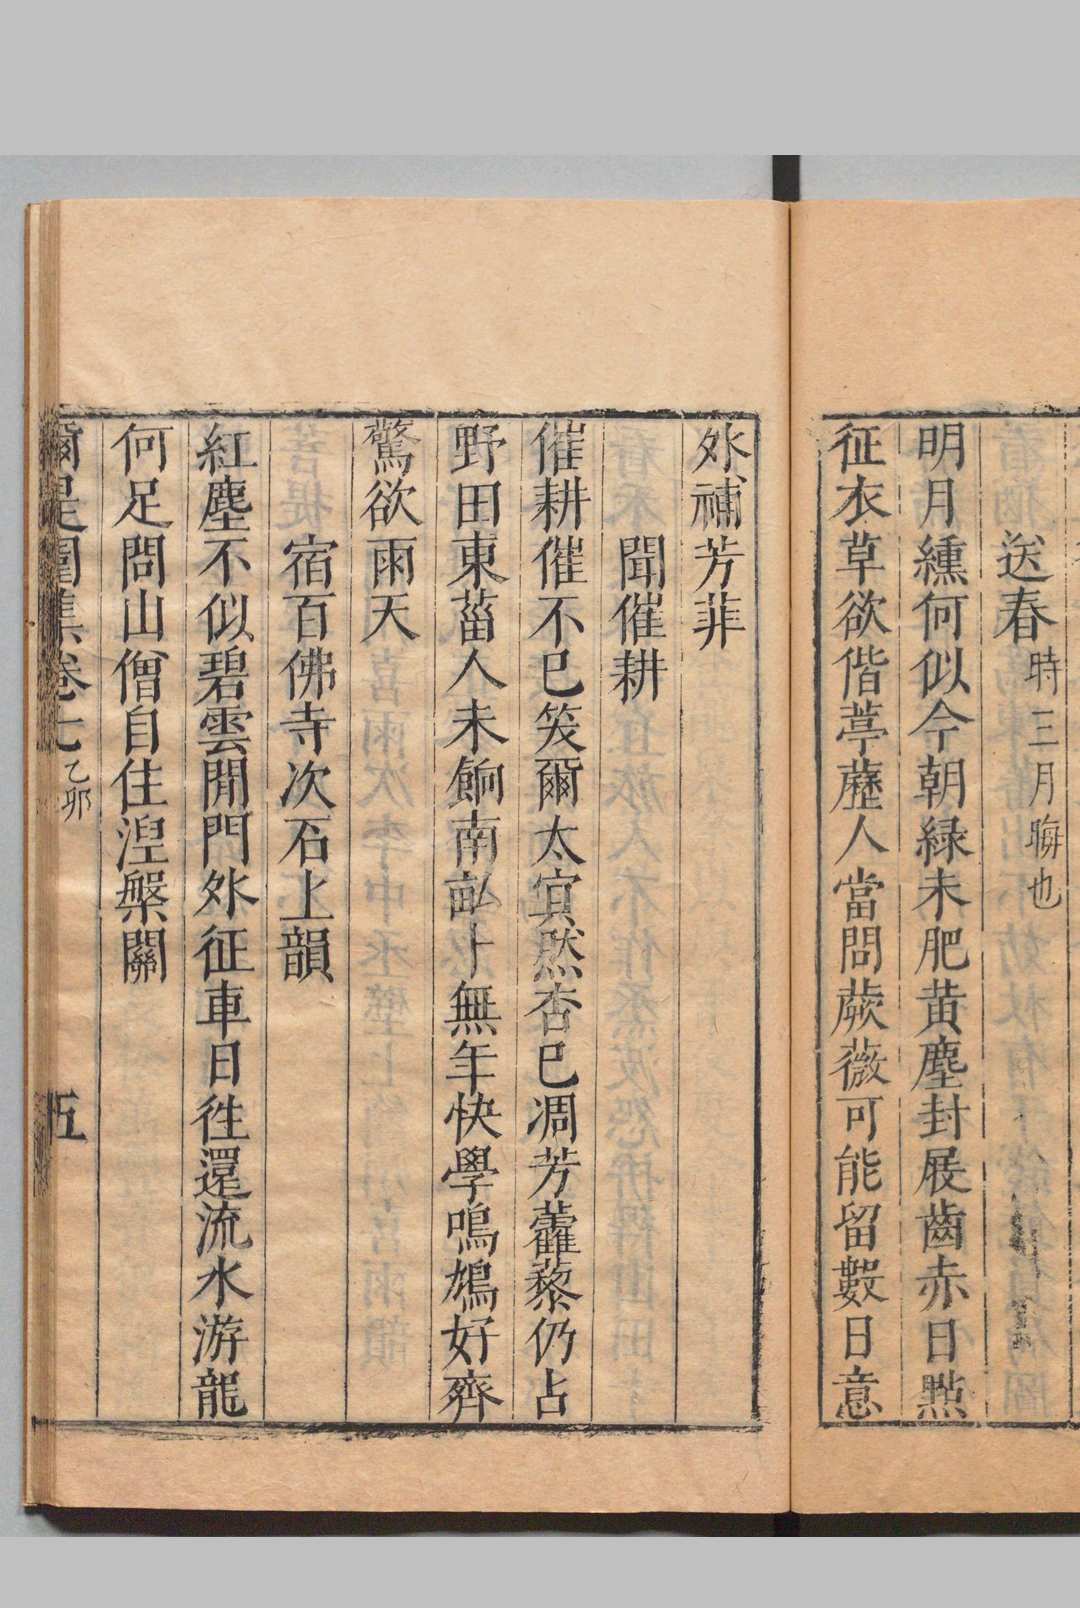 送春時三月晦也
明月纁何似今朝緑未肥黄塵封屐齒赤日㸃
征衣草欲偕葶藶人當問蕨薇可能留數日意
外補芳菲
聞催耕
催耕催不已笑爾太寘然杏已凋芳藿藜仍占
野田東菑人未餉南畝十無年快學鳴鳩好齊
驚欲雨天
宿百佛寺次石上韻
紅塵不似碧雲閒門外征車日徃還流水游龍
何足問山僧自住湼槃關
集卷七乙卯
五